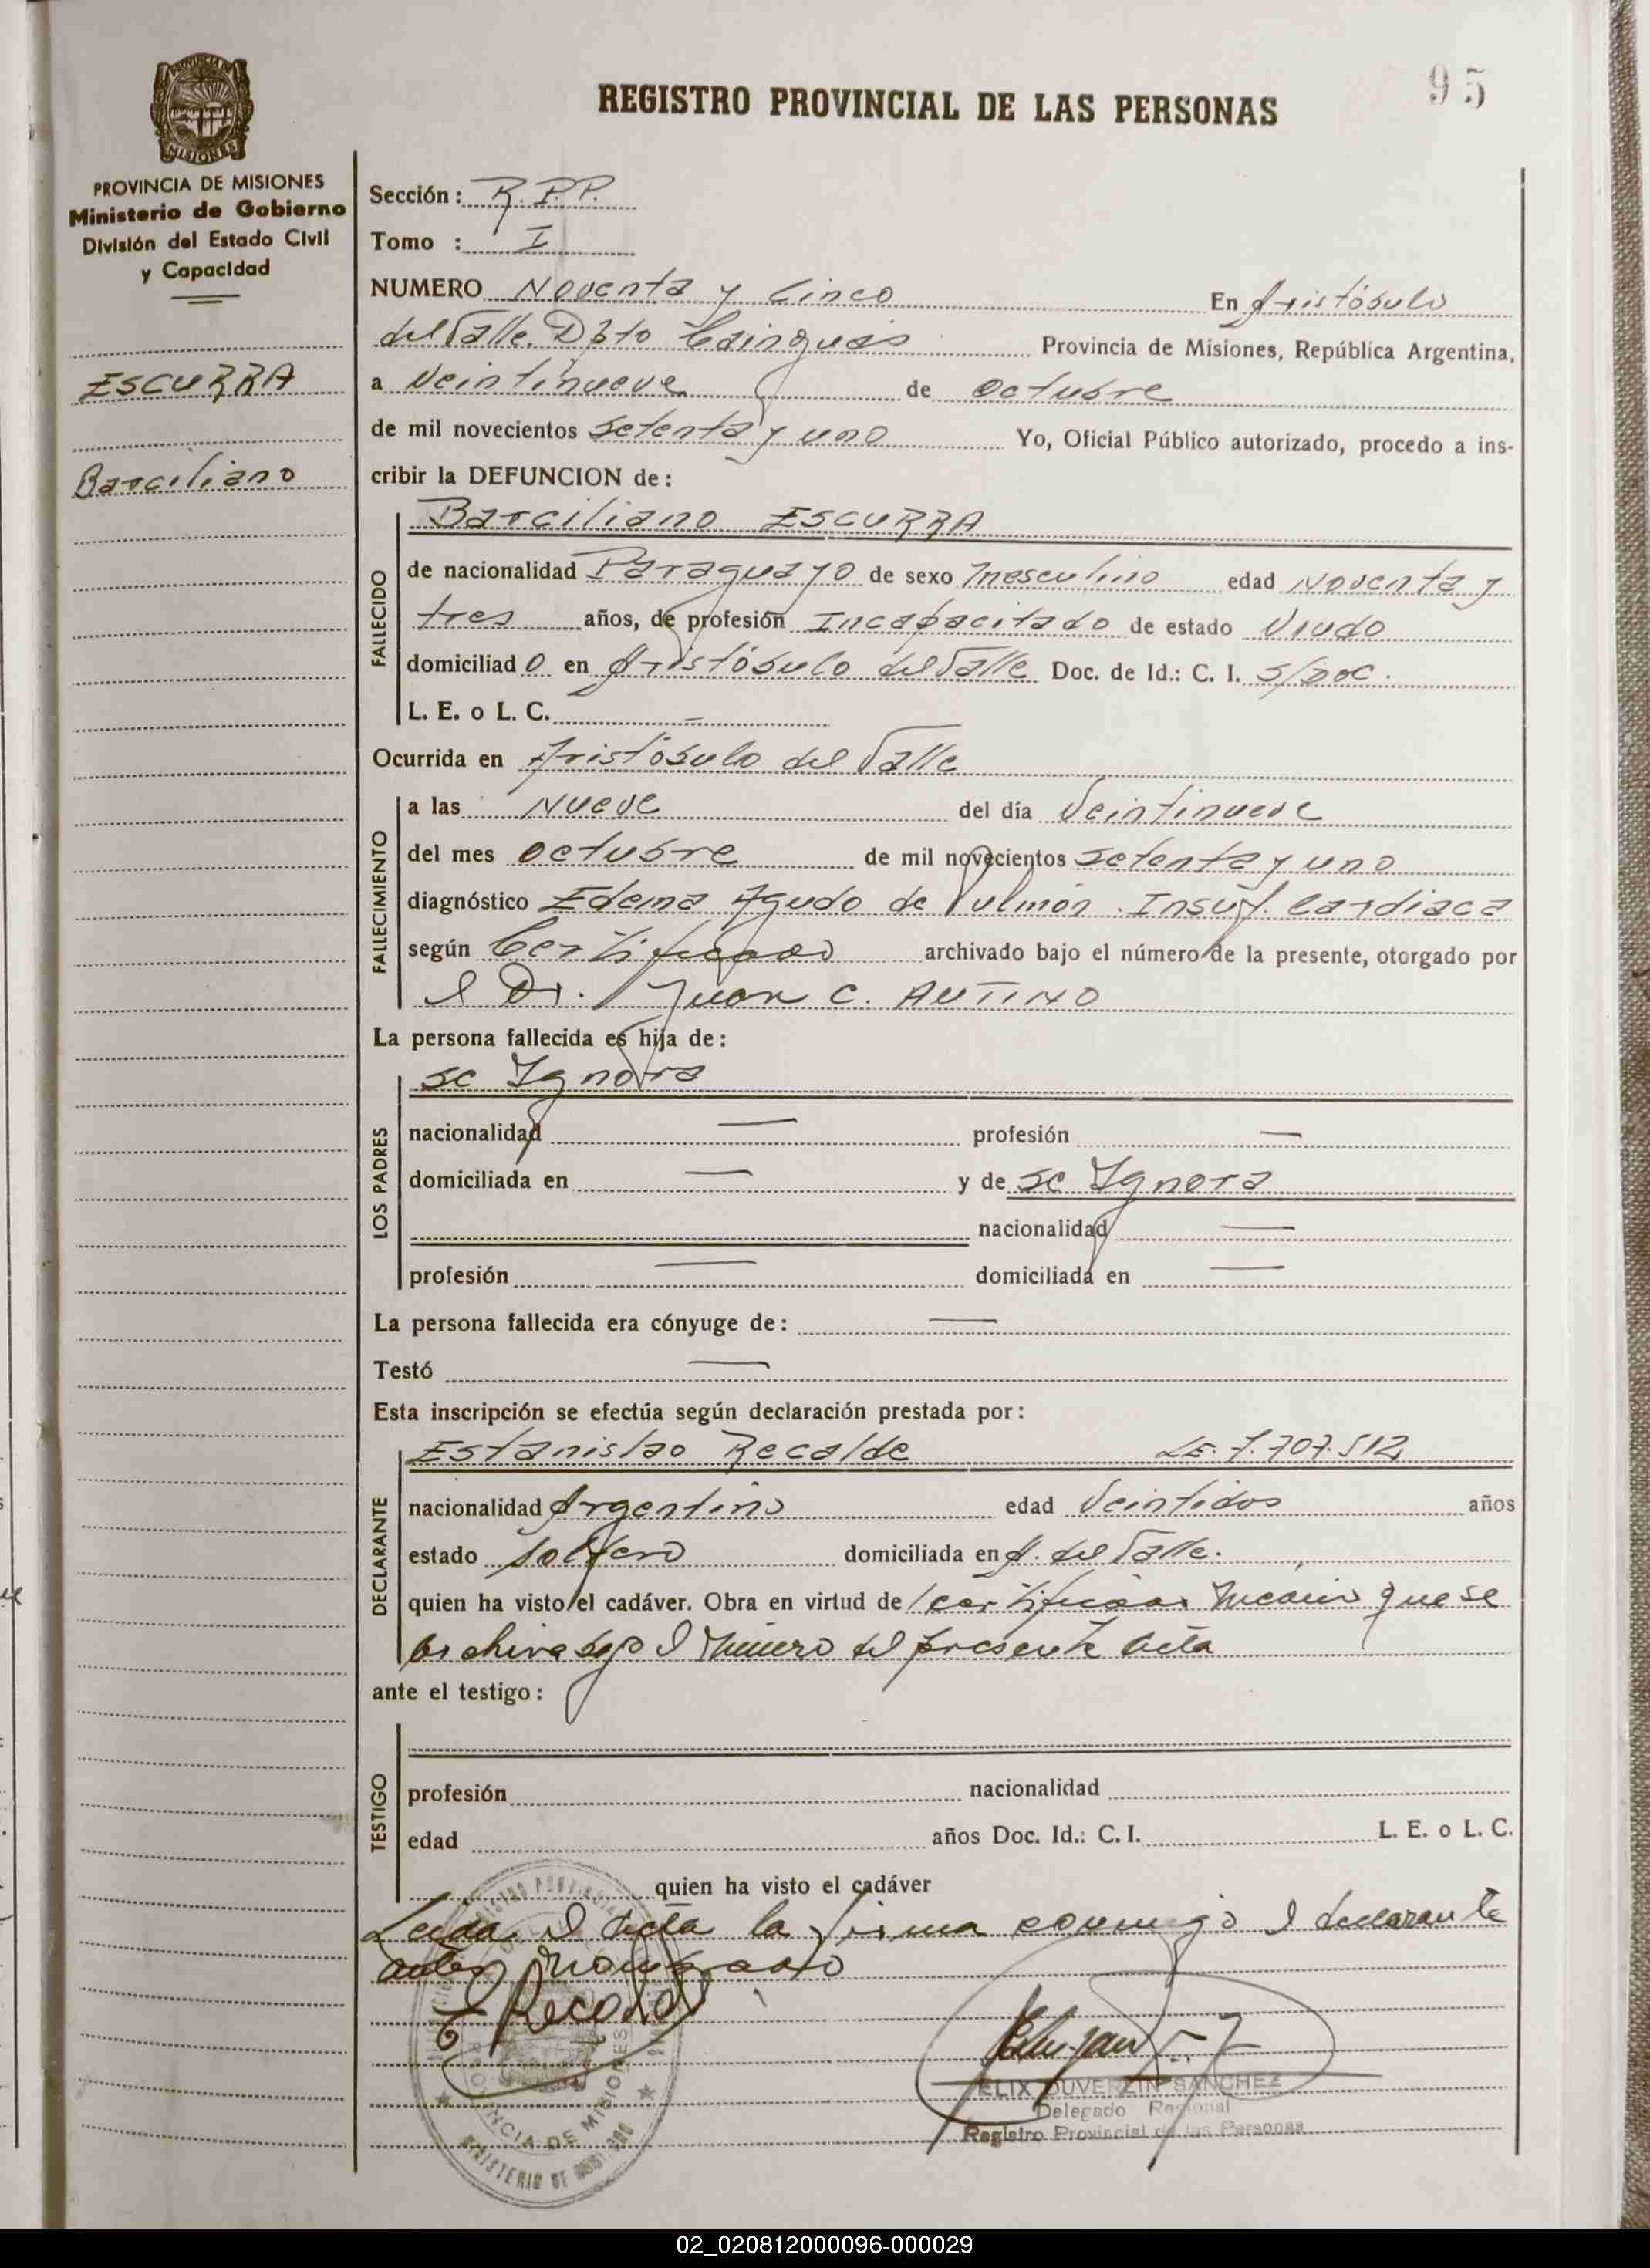 95
REGISTRO PROVINCIAL DE LAS PERSONAS
PROVINCIA DE
MISIONES
PROVINCIA DE MISIONES
Ministerio de Gobierno
División del Estado Civil
y Capacidad
ESCURRA
Barciliano
Sección: R.P.P.
Tomo : I
NUMERO Noventa y Cinco En Aristóbulo
del Valle. Dpto Cainguás Provincia de Misiones, República Argentina,
a Veintinueve de Octubre
de mil novecientos setenta y uno Yo, Oficial Público autorizado, procedo a ins-
cribir la DEFUNCION de:
Barciliano ESCURRA
FALLECIDO
de nacionalidad Paraguayo de sexo Masculino edad Noventa y
tres años, de profesión Incapacitado de estado Viudo
domiciliado en Aristóbulo del Valle Doc. de Id.: C. I. S/DOC.
L. E. o L. C. —
Ocurrida en Aristóbulo del Valle
FALLECIMIENTO
a las Nueve del día Veintinueve
del mes Octubre de mil novecientos setenta y uno
diagnóstico Edema Agudo de Pulmón. Insuf. Cardiaca
según Certificado archivado bajo el número de la presente, otorgado por
el Dr. Juan C. AUTINO
La persona fallecida es hija de:
LOS PADRES
se Ignora
nacionalidad — profesión —
domiciliada en — y de se Ignora
nacionalidad —
profesión — domiciliada en —
La persona fallecida era cónyuge de: —
Testó —
Esta inscripción se efectúa según declaración prestada por:
DECLARANTE
Estanislao Recalde LE. 7.707.512
nacionalidad Argentino edad Veintidos años
estado Soltero domiciliada en A. del Valle.
quien ha visto el cadáver. Obra en virtud de certificado que se
Archiva bajo el Número del presente Acta
ante el testigo:
TESTIGO
profesión nacionalidad
edad años Doc. Id.: C. I. L. E. o L. C.
quien ha visto el cadáver
Leida el Acta la firma conmigo el declarante
antes nombrado
E Recalde
PROVINCIA DE MISIONES
MINISTERIO DE
FELIX DUVERZIN SANCHEZ
Delegado Regional
Registro Provincial de las Personas
02_020812000096-000029